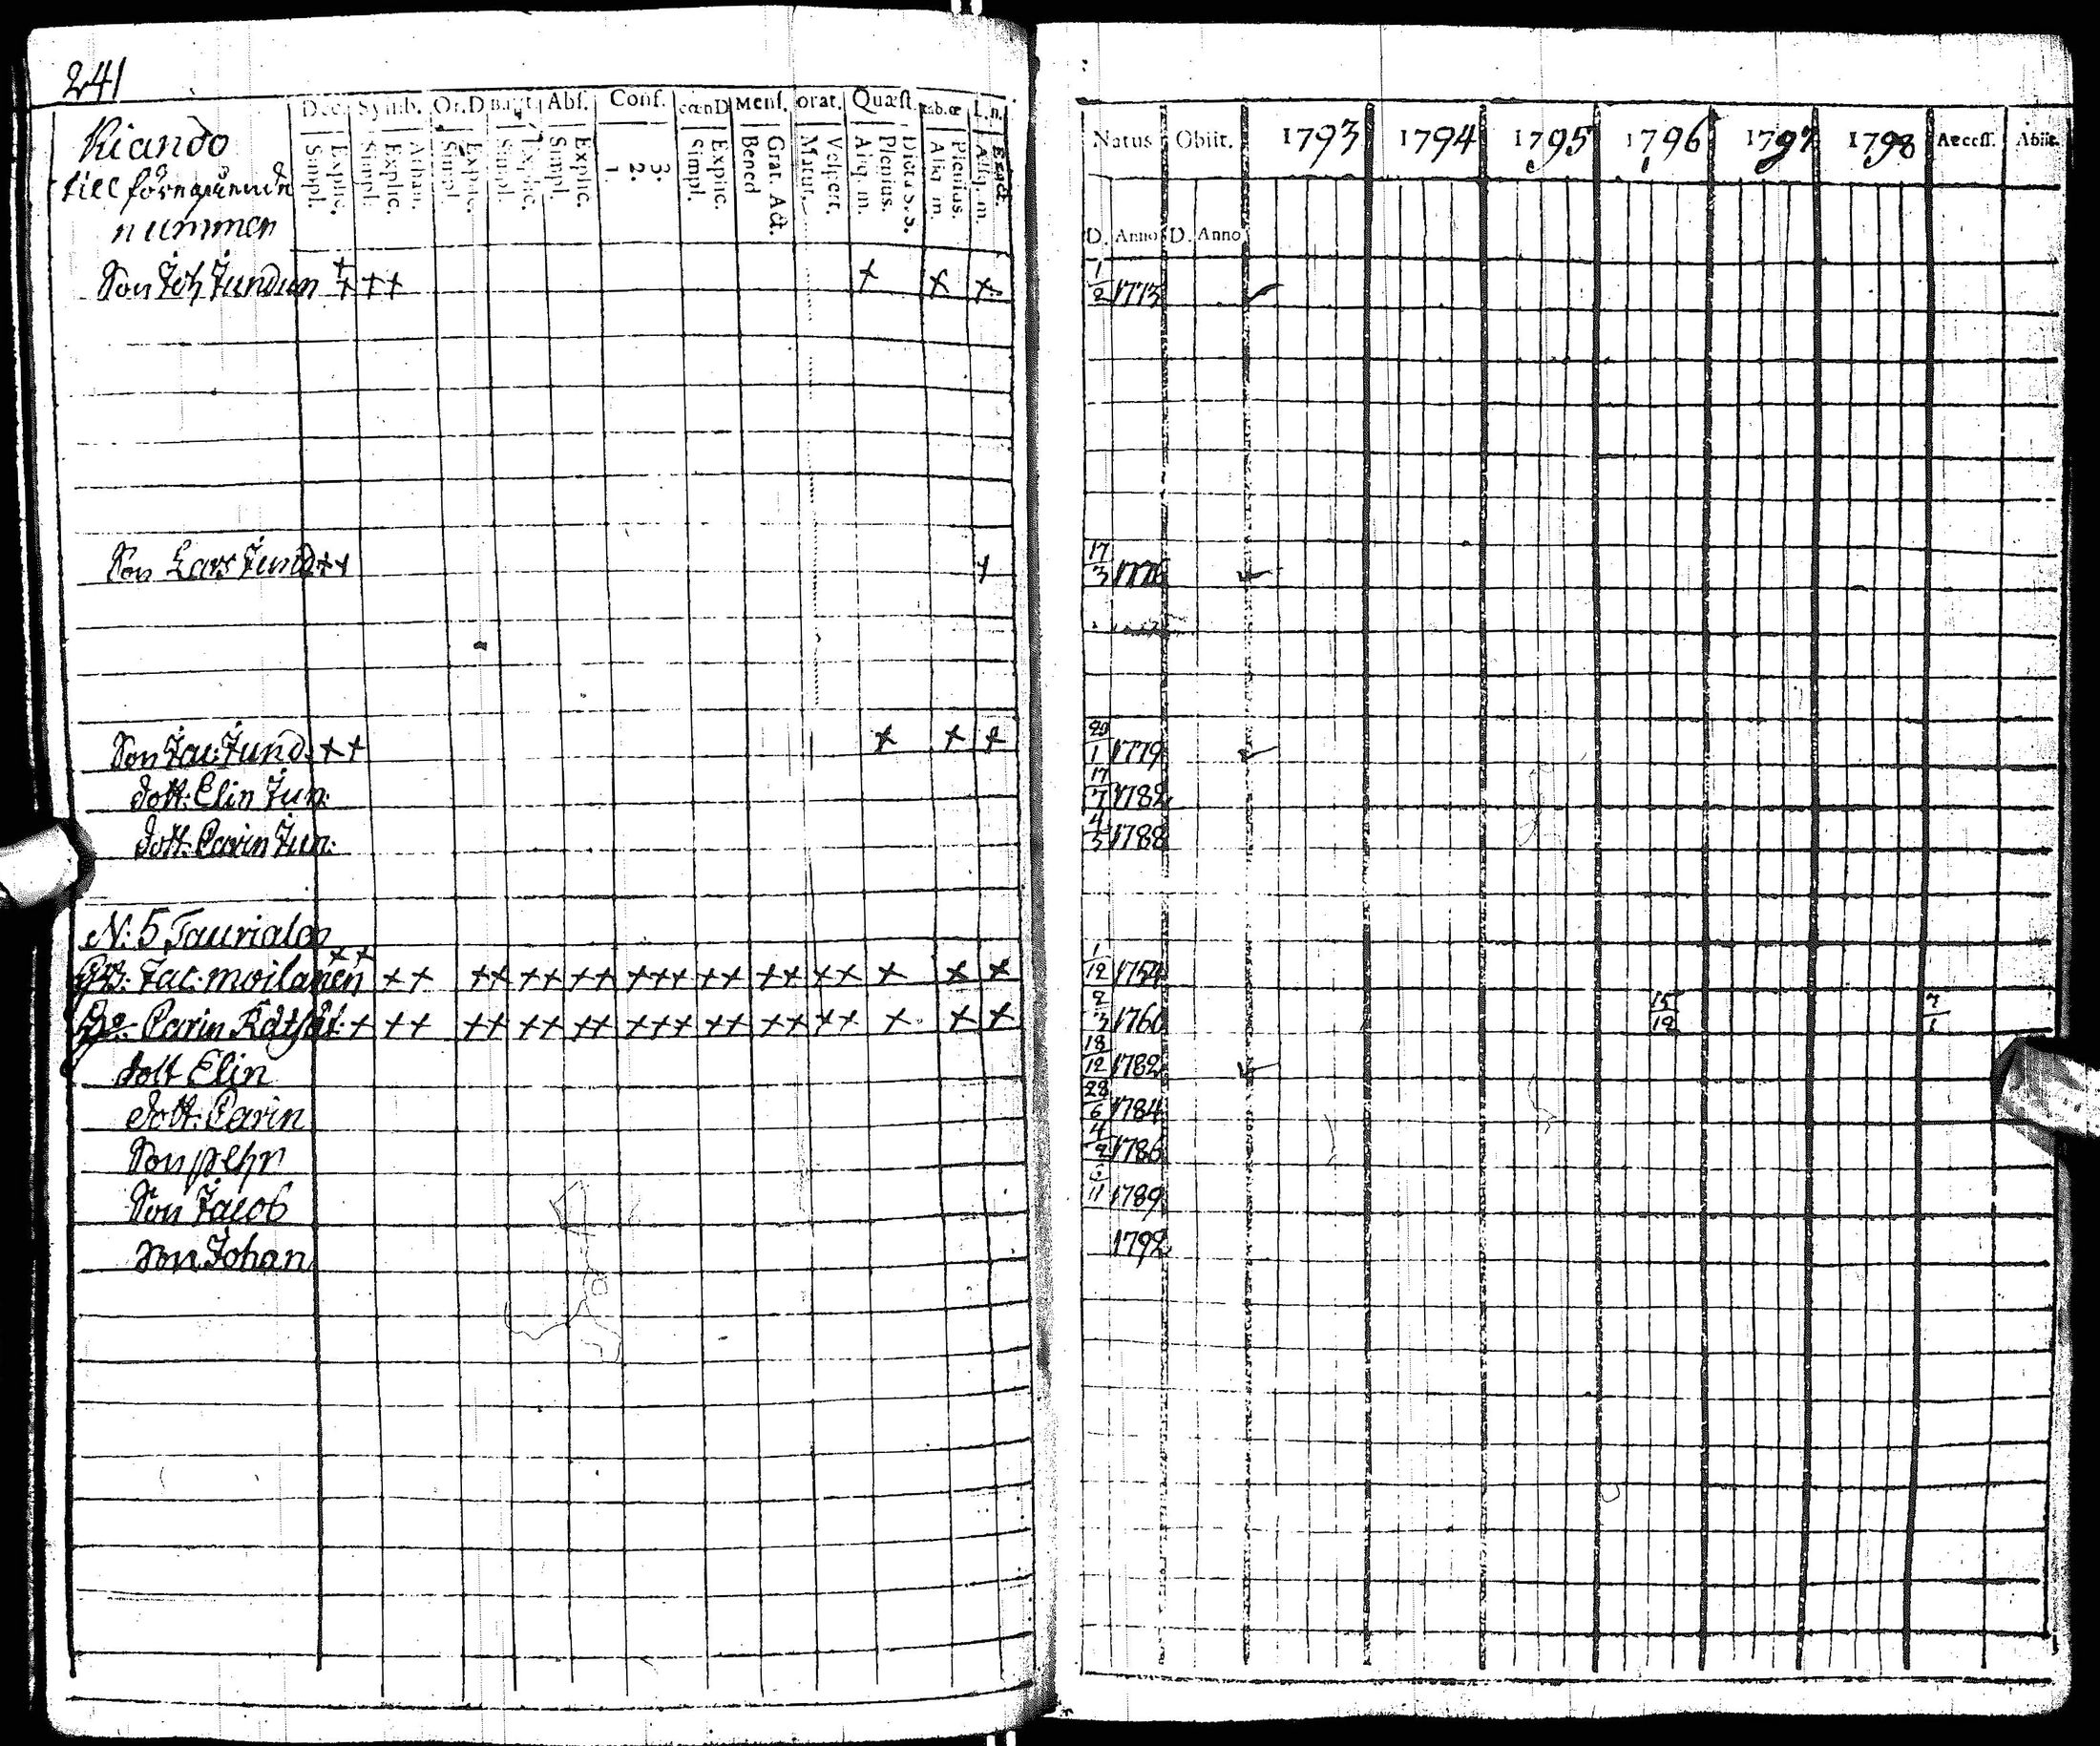 241
Riando
till förnämnde
nummer
Dec. Symb. Or.D Bapt. Abs. Conf. cœnD Mens. orat. Quæst. Tab.œ L.n.
Simpl. Explic. Simpl. Explic. Athan. Simpl. Explic. Simpl. Explic. Simpl. Explic. 1. 2. 3. Simpl. Explic. Bened Grat. Act. Matut. Vespert. Aliq. m. Plenius. Dicta S. S. Aliq. m. Plenius. Aliq. m. Exact.
Natus Obiit. 1793 1794 1795 1796 1797 1798 Access. Abiit.
D. Anno D. Anno
Son Joh Jundun + + + + + + + 1/2 1773
Son Lars Jund + + + 17/3 1776
Son Jac: Jund: + + + + + 29/1 1779
dott: Elin Jun: 17/7 1782
dott: Carin Jun: 4/3 1788
N: 5 Taurialop
Jac: moilanen ++ ++ ++ ++ ++ +++ ++ ++ ++ + + + 1/12 1754
Carin Rätjät: + ++ ++ ++ ++ +++ ++ ++ ++ + + + 2/3 1760 15/12
dott Elin 18/12 1782
dott: Carin 28/6 1784
Son pehr 4/2 1786
Son Jacob 11 1789
Son Johan 1792